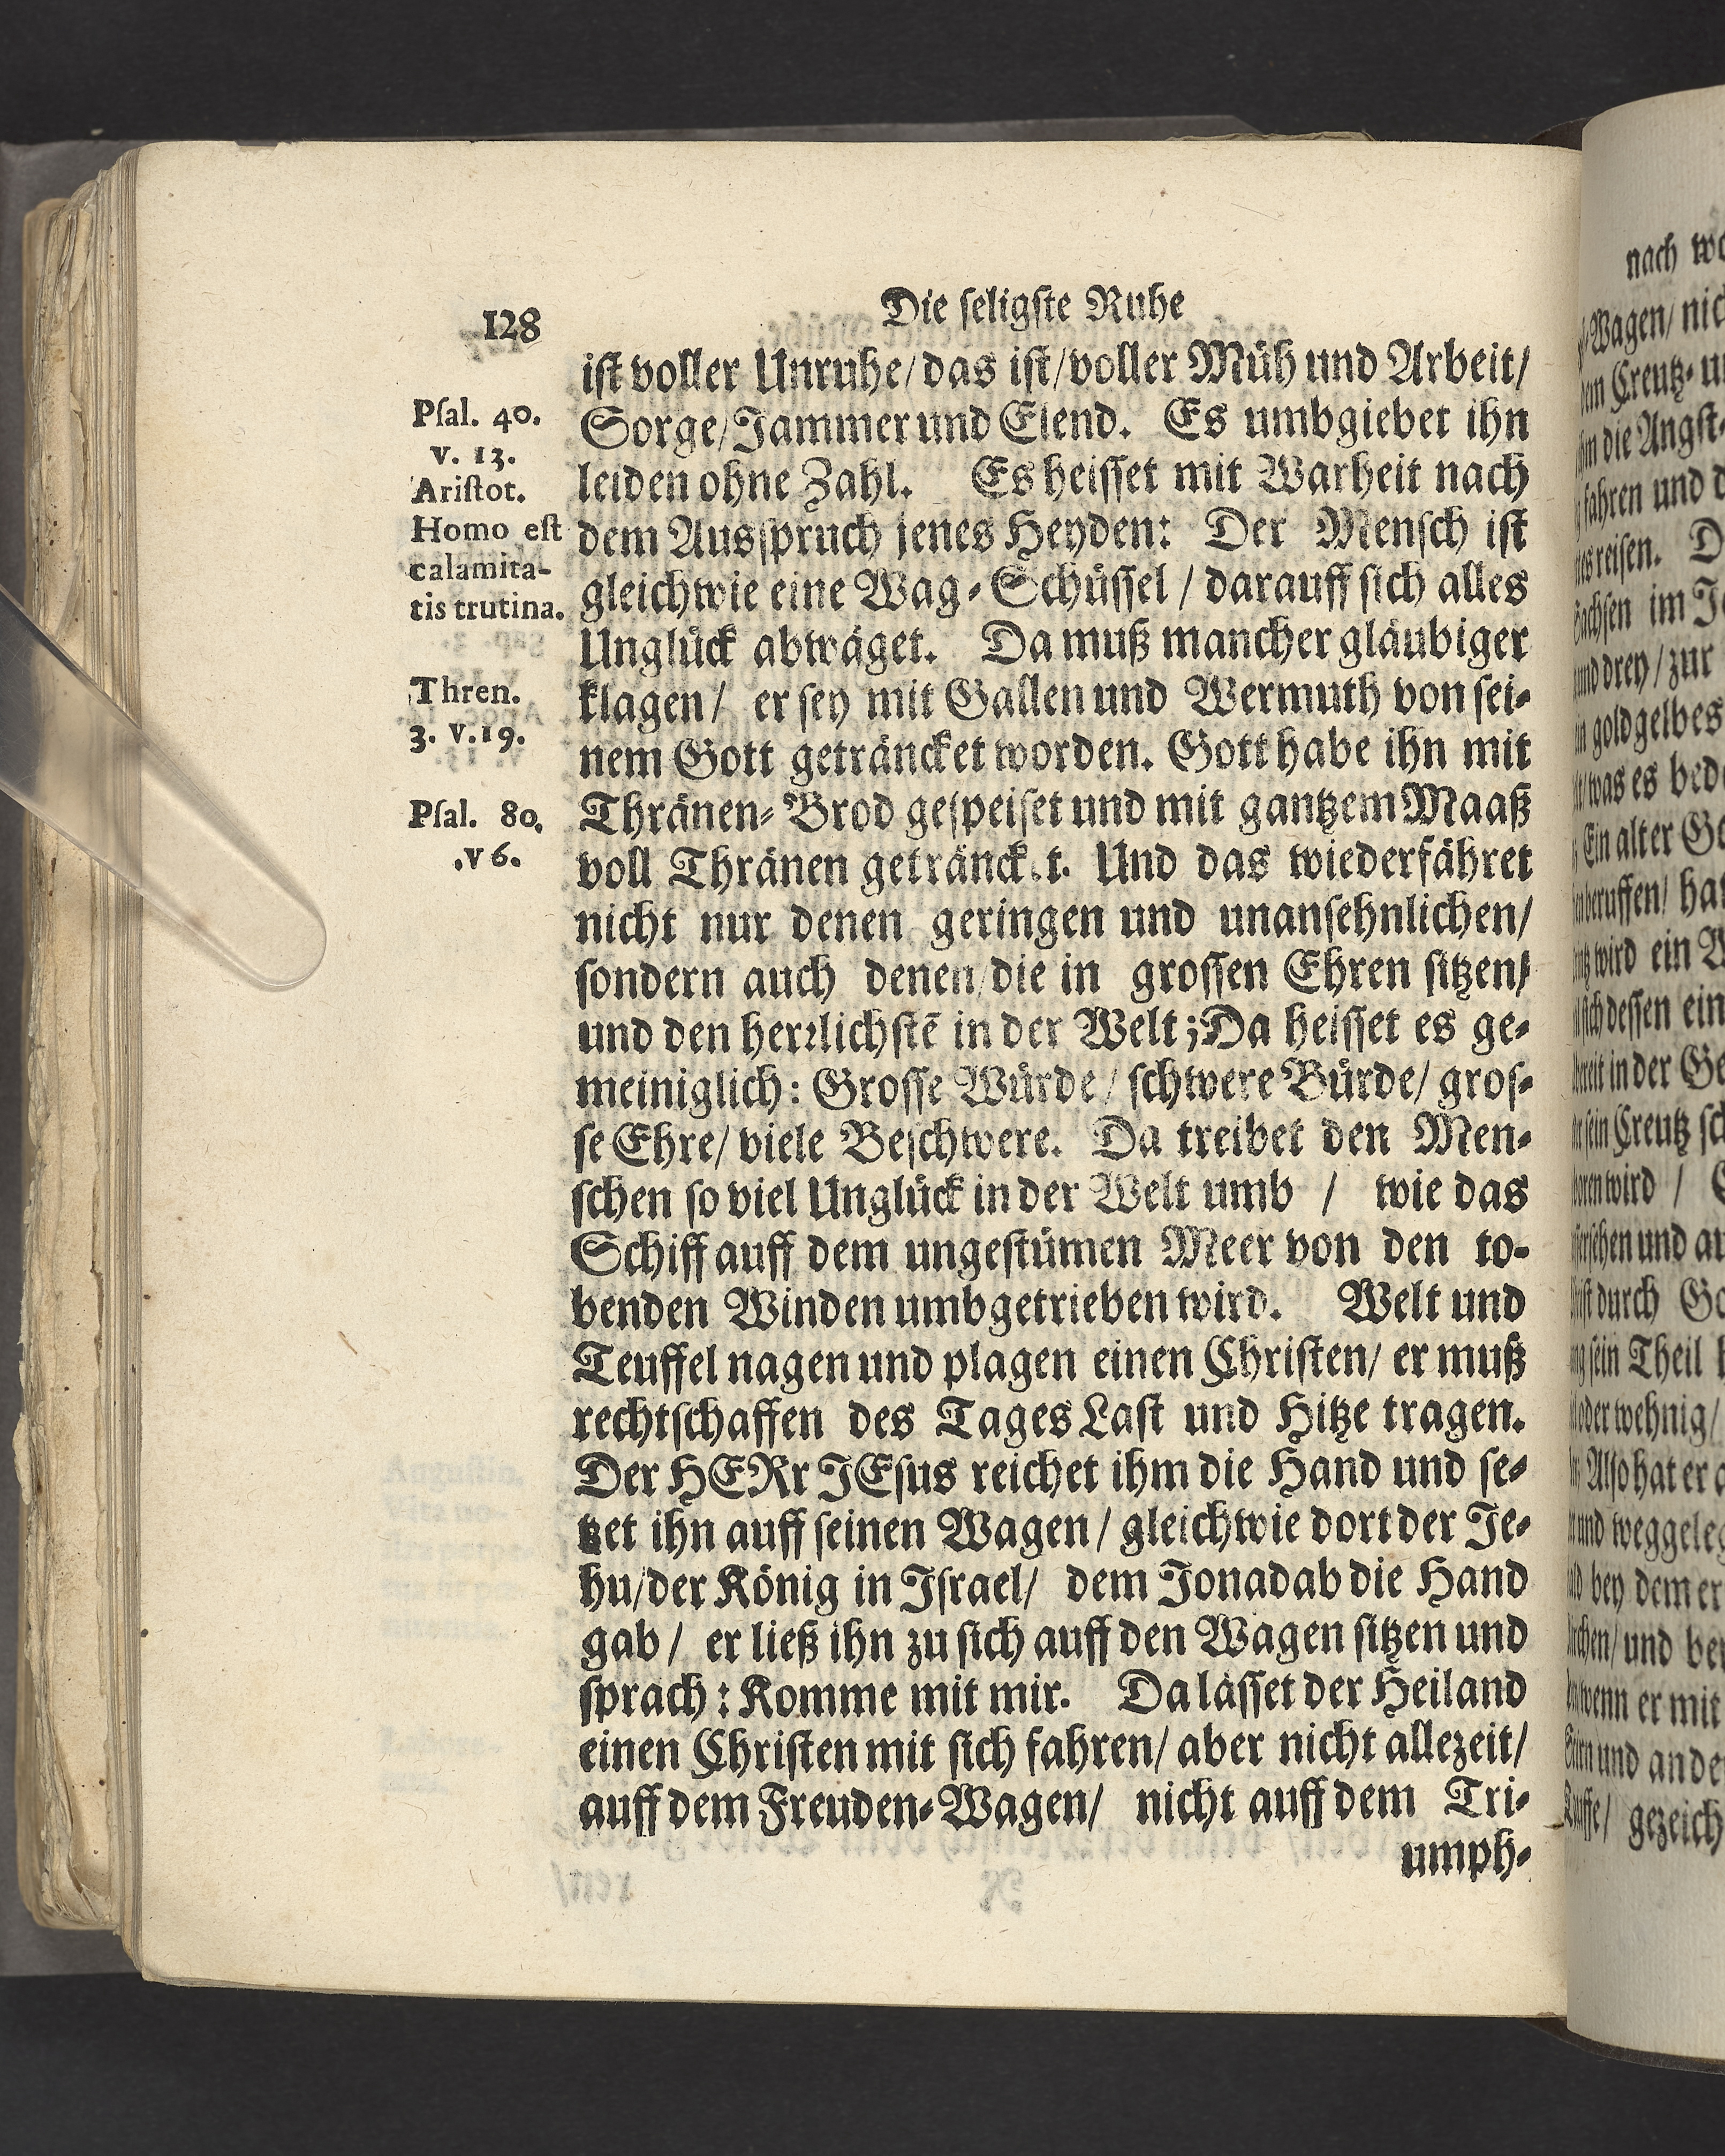 128
Die ſeligſte Ruhe
iſt voller Unruhe/das iſt/voller Müh und Arbeit/
Sorge/Jammer und Elend. Es umbgiebet ihn
leiden ohne Zahl. Es heiſſet mit Warheit nach
dem Ausſpruch jenes Heyden: Der Menſch iſt
gleichwie eine Wag-Schüſſel / darauff ſich alles
Unglück abwäget. Da muß mancher gläubiger
klagen/ er ſey mit Gallen und Wermuth von ſei-
nem Gott geträncket worden. Gott habe ihn mit
Thränen-Brod geſpeiſet und mit gantzem Maaß
voll Thränen geträncket. Und das wiederfähret
nicht nur denen geringen und unanſehnlichen/
ſondern auch denen/die in groſſen Ehren ſitzen/
und den herꝛlichſtē in der Welt; Da heiſſet es ge-
meiniglich: Groſſe Würde/ ſchwere Bürde/ groſ-
ſe Ehre/ viele Beſchwere. Da treibet den Men-
ſchen ſo viel Unglück in der Welt umb / wie das
Schiff auff dem ungeſtümen Meer von den to-
benden Winden umbgetrieben wird. Welt und
Teuffel nagen und plagen einen Chriſten/ er muß
rechtſchaffen des Tages Laſt und Hitze tragen.
Der HERr JEſus reichet ihm die Hand und ſe-
tzet ihn auff ſeinen Wagen/ gleichwie dort der Je-
hu/der König in Iſrael/ dem Jonadab die Hand
gab/ er ließ ihn zu ſich auff den Wagen ſitzen und
ſprach: Komme mit mir. Da läſſet der Heiland
einen Chriſten mit ſich fahren/ aber nicht allezeit/
auff dem Freuden-Wagen/ nicht auff dem Tri-
umph-
Pſal. 40.
v. 13.
Ariſtot.
Homo eſt
calamita-
tis trutina.
Thren.
3. v. 19.
Pſal. 80.
.v 6.
nach
Wagen/
die Angſt-
fahren und
reiſen.
im
und drey/ zur
goldgelbes
was es
Ein alter
wird ein
ſich deſſen
in der
ſein Creutz
wird /
und
durch
ſein Theil
oder wehnig/
Alſo hat er
und
bey dem er
und
wenn er mit
und